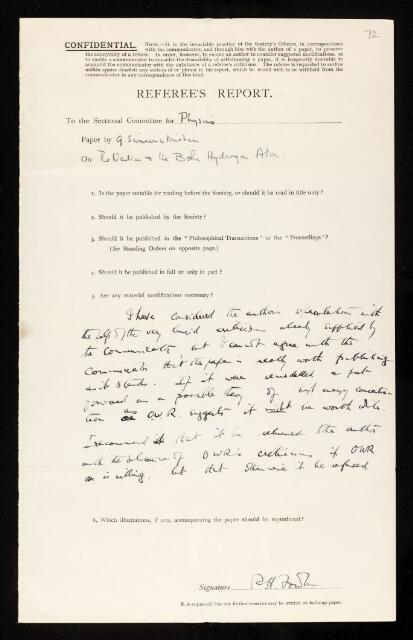 72
CONFIDENTIAL. NOTE.—It is the invariable practice of the Society's Officers, in correspondence
with the communicator, and through him with the author of a paper, to preserve
the anonymity of a referee. In order, however, to enable an author to consider suggested modifications, or
to enable a communicator to consider the desirability of withdrawing a paper, it is frequently desirable to
acquaint the communicator with the substance of a referee's criticisms. The referee is requested to enclose
within square brackets any action of or phrase in his report, which he would wish to be withheld from the
communicator in any correspondence of this kind.
REFEREE'S REPORT.
To the Sectional Committee for Physics
Paper by G.
On Relation to the Bohr Hydrogen Atom.
1. Is the paper suitable for reading before the Society, or should it be read in title only?
2. Should it be published by the Society?
3. Should it be published in the "Philosophical Transactions" or the "Proceedings"?
(See Standing Orders on opposite page.)
4. Should it be published in full or only in part?
5. Are any material modifications necessary?
I have considered the authors speculation with
the help of the very lucid criticisms already supplied by
the Communicator, but I cannot agree with the
Communicator that the paper is really worth publishing
as it stands. If it were remodelled & put
forward as a possible theory of
as O.W.R. suggests it might be worth while.
I recommend that it be returned to the author
with the substance of OWR's criticisms if OWR
is willing, but that otherwise it be refused
6. Which illustrations, if any, accompanying the paper should be reproduced?
Signature R.H. Fowler
It is requested that any further remarks may be written on foolscap paper.